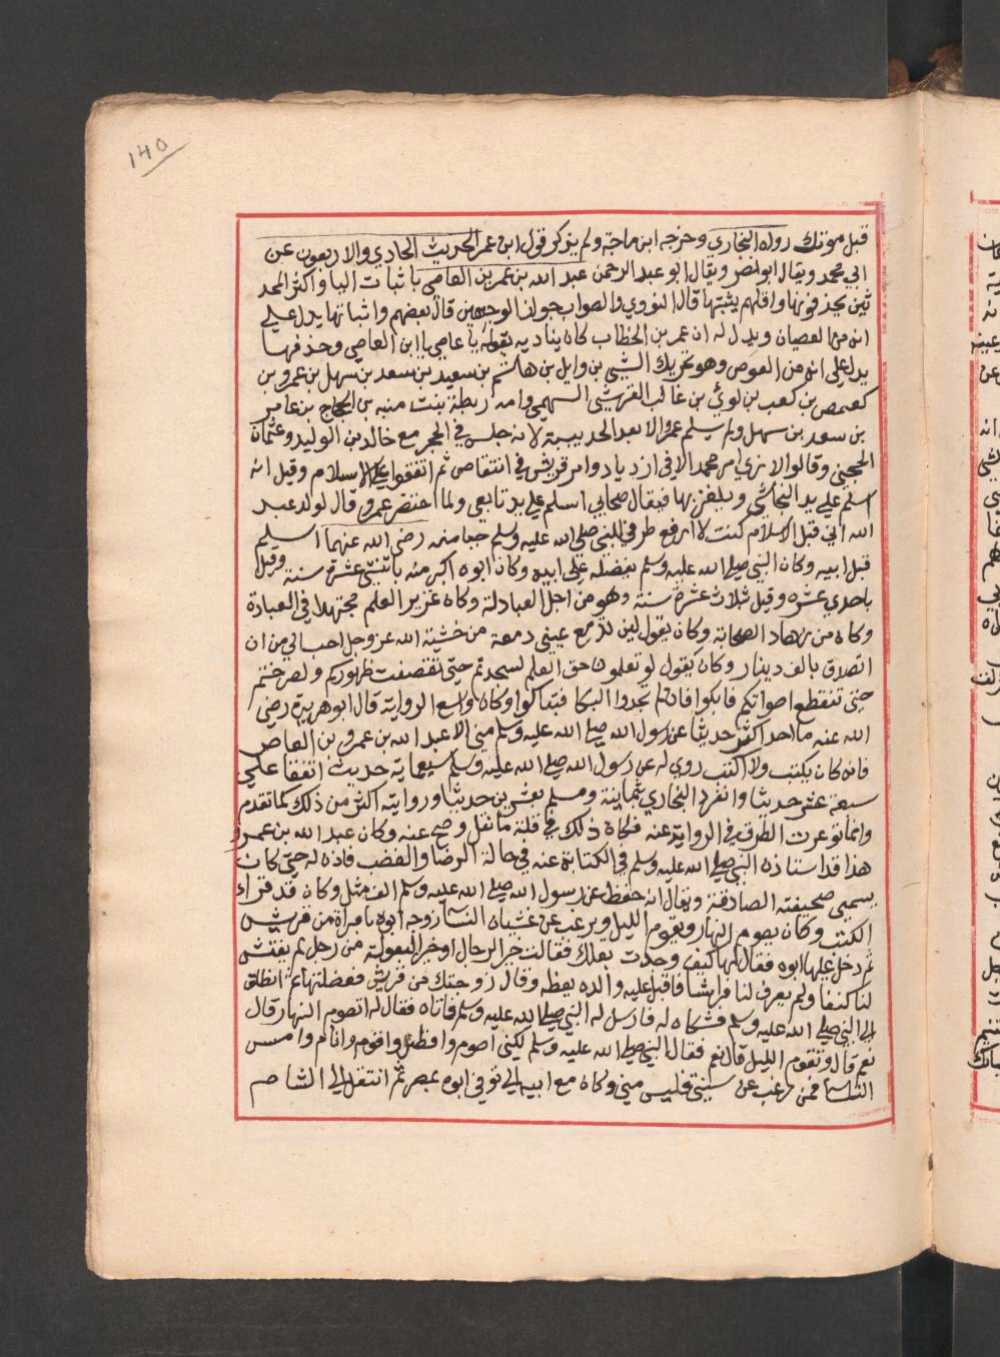 140
قبل موتك رواه البخاري وخرجه ابن ماجة ولم يذكر قول ابن عمر الحديث الحادي والاربعون عن
ابي محمد ويقال ابو نصر ويقال ابو عبد الرحمن عبد الله بن عمر بن العاصي باثبات اليا واكثر المحد
ثين يحذفونها واقلهم يثبتها قال النووي والصواب جواز الوجهين قال بعضهم واثباتها يدل علي
انه من العصيان ويدل له ان عمر بن الخطاب كاه يناديه بقوله يا عاصي يا ابن العاصي وحذفها
يدل علي انه من العوص وهو تحريك الشي بن وايل بن هاشم بن سعيد بن سعد بن سهل بن عمرو بن
كعمص بن كعب بن لوئ بن غالب القرشي السهمي وامه ريطة بنت منبه بن الحجاج بن عامر
بن سعد بن سهل ولم يسلم عمرو الا بعد الحديبية لانه جلس في الحجر مع خالد بن الوليد وعثمان
الحجبي وقالوا لا نري امر محمد الا في ازدياد وامر قريش في انتقاص ثم اتفقوا علي الاسلام وقيل انه
اسلم علي يد النجاشي ويلغز بها فيقال صحابي اسلم علي يد تابعي ولما احتضر عمرو قال لولده عبد
الله اني قبل الاسلام كنت لا ارفع طرفي للنبي صلي الله عليه وسلم حيا منه رضي الله عنهما اسلم
قبل ابيه وكان النبي صلي الله عليه وسلم يفضله علي ابيه وكان ابوه اكبر منه باثنتي عشرة سنة وقيل
باحدي عشره وقيل ثلاث عشرة سنة وهو من اجل العبادلة وكاه غزير العلم مجتهدا في العبادة
وكاه من زهاد الصحابة وكان يقول لين تدمع عيني دمعة من خشية الله عز وجل احب الي من ان
اتصدق بالف دينار وكان يقول لو تعلمون حق العلم لسجدتم حتي تقصفت ظهوركم ولصرختم
حتي تنقطع اصواتكم فابكوا فان لم تجدوا البكا فتباكوا وكاه واسع الرواية قال ابو هريرة رضي
الله عنه ما احد اكثر حديثا عن رسول الله صلي الله عليه وسلم مني الا عبد الله بن عمرو بن العاص
فانه كان يكتب ولا اكتب روي له عن رسول الله صلي الله عليه وسلم سبعماية حديث اتفقا علي
سبعة عشر حديثا وانفرد البخاري بثمانية ومسلم بعشرين حديثا وروايته اكثر من ذلك كما تقدم
وانما توعرت الطرق في الرواية عنه فكاه ذلك في قلة ما نقل وصح عنه وكان عبد الله بن عمرو
هذا قد استاذه النبي صلي الله عليه وسلم في الكتابة عنه في حالة الرضا والغضب فاذه له حتي كان
يسمي صحيفته الصادقة ويقال انه حفظ عن رسول الله صلي الله عليه وسلم الف مثل وكان قد قراء
الكتب وكان يصوم النهار ويقوم الليل ويرغب عن غشيان النسآ زوجه ابوه بامراة من قريش
ثم دخل عليها ابوه فقال لها كيف وجدت بعلك فقالت خير الرجال او خير البعولة من رجل لم يفتش
لنا كنفا ولم يعرف لنا فراشا فاقبل عليه والده يعظه وقال زوجتك من قريش فعضلتها ثم انطلق
الي النبي صلي الله عليه وسلم فشكاه له فارسل له النبي صلي الله عليه وسلم فاتاه فقال له اتصوم النهار قال
نعم قال وتقوم الليل قال نعم فقال النبي صلي الله عليه وسلم لكني اصوم وافطر واقوم وانام وامس
النسا فمن رغب عن سنتي فليس مني وكاه مع ابيه الي توفي ابوه بمصر ثم انتقل الي الشام